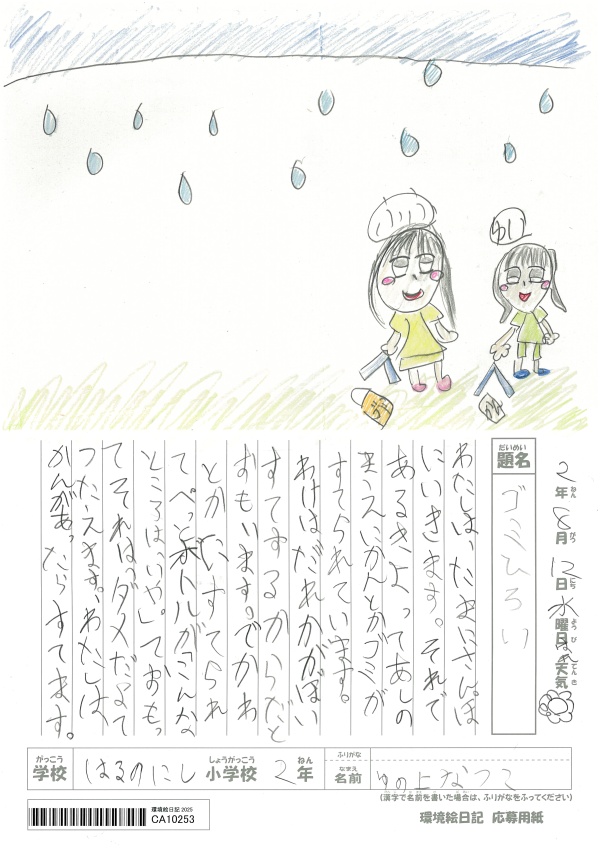 ゆい
だいめい
題名
ゴミひろい
2年8月12日水曜日
ねん
がつ
にち
ようび
てんき
天気
わたしは、たまにさんぽ
にいきます。それで
あるきよってあしの
まえにかんとかゴミが
すてられています。
わけはだれかがぽい
すてするからだと
おもいます。でかわ
とかにすてられ
てぺっとボトルが「こんな
ところは、いや。」っておもっ
てそれは、ダメだよって
つたえます。わたしは、
かんがあったらすてます。
がっこう
学校
はるのにし
しょうがっこう
小学校
2年
ねん
ふりがな
なまえ
名前
ゆの上なつこ
(漢字で名前を書いた場合は、ふりがなをふってください)
環境絵日記 2025
CA10253
環境絵日記 応募用紙